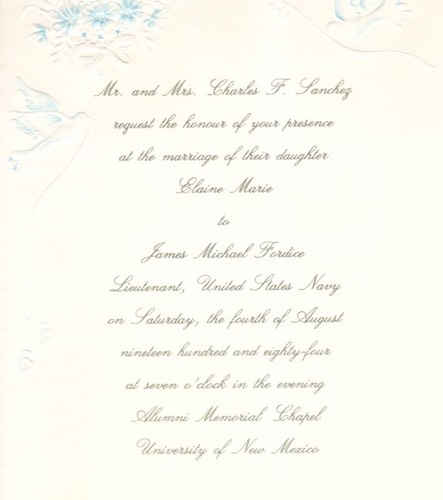 Mr. and Mrs. Charles F. Sanchez
request the honour of your presence
at the marriage of their daughter
Elaine Marie
to
James Michael Fordice
Lieutenant, United States Navy
on Saturday, the fourth of August
nineteen hundred and eighty-four
at seven o'clock in the evening
Alumni Memorial Chapel
University of New Mexico